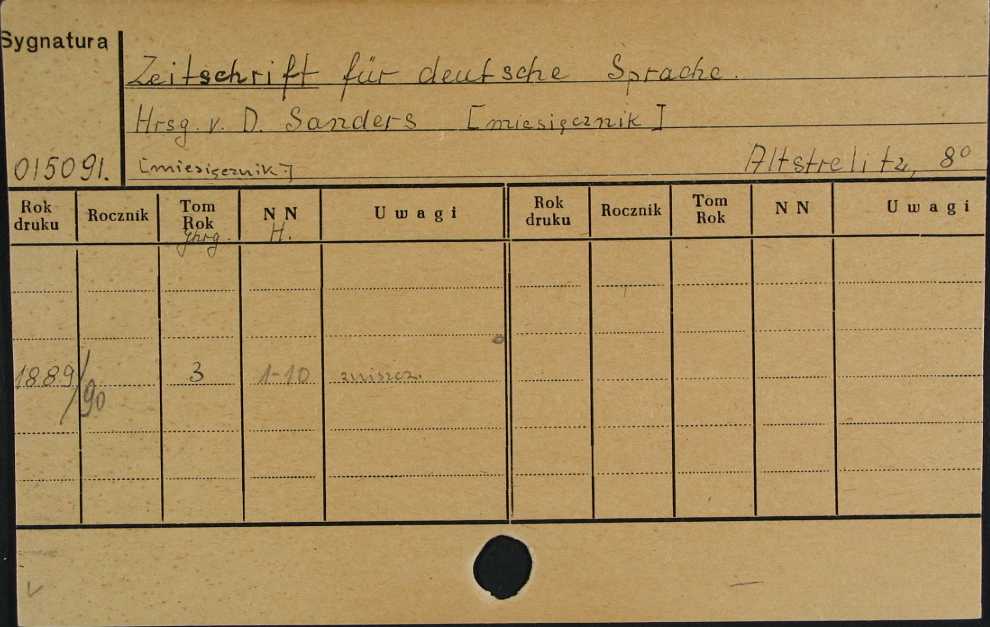 Sygnatura
Zeitschrift für deutsche Sprache.
Hrsg. v. D. Sanders [miesięcznik]
015091. [miesięcznik] Altstrelitz, 8°
Rok druku Rocznik Tom Rok Jhrg. NN H. Uwagi Rok druku Rocznik Tom Rok NN Uwagi
1889/90 3 1-10 zniszcz.